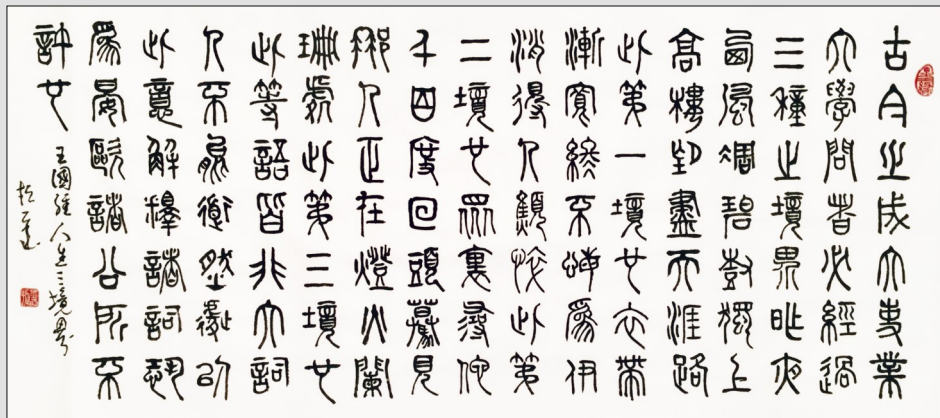 古今之成大事業
大學問者必經過
三種之境界昨夜
西風凋碧樹獨上
高樓望盡天涯路
此第一境也衣帶
漸寬終不悔為伊
消得人顦悴此第
二境也眾裏尋他
千百度回頭驀見
那人正在燈火闌
珊處此第三境也
此等語皆非大詞
人不能道然遽以
此意解釋諸詞恐
為晏歐諸公所不
許也
王國維人生三境界